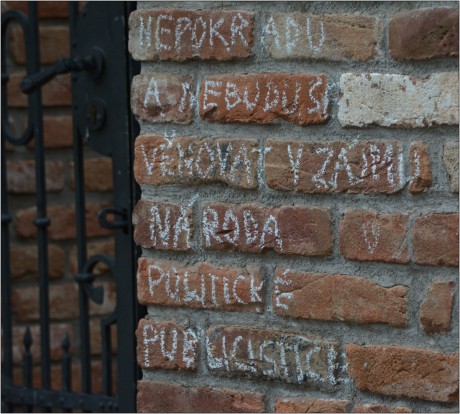 NEPOKRADU
A NEBUDU
VĚNOVAT V ZÁJMU
NÁRODA
POLITICKÉ
PUBLICISTICE